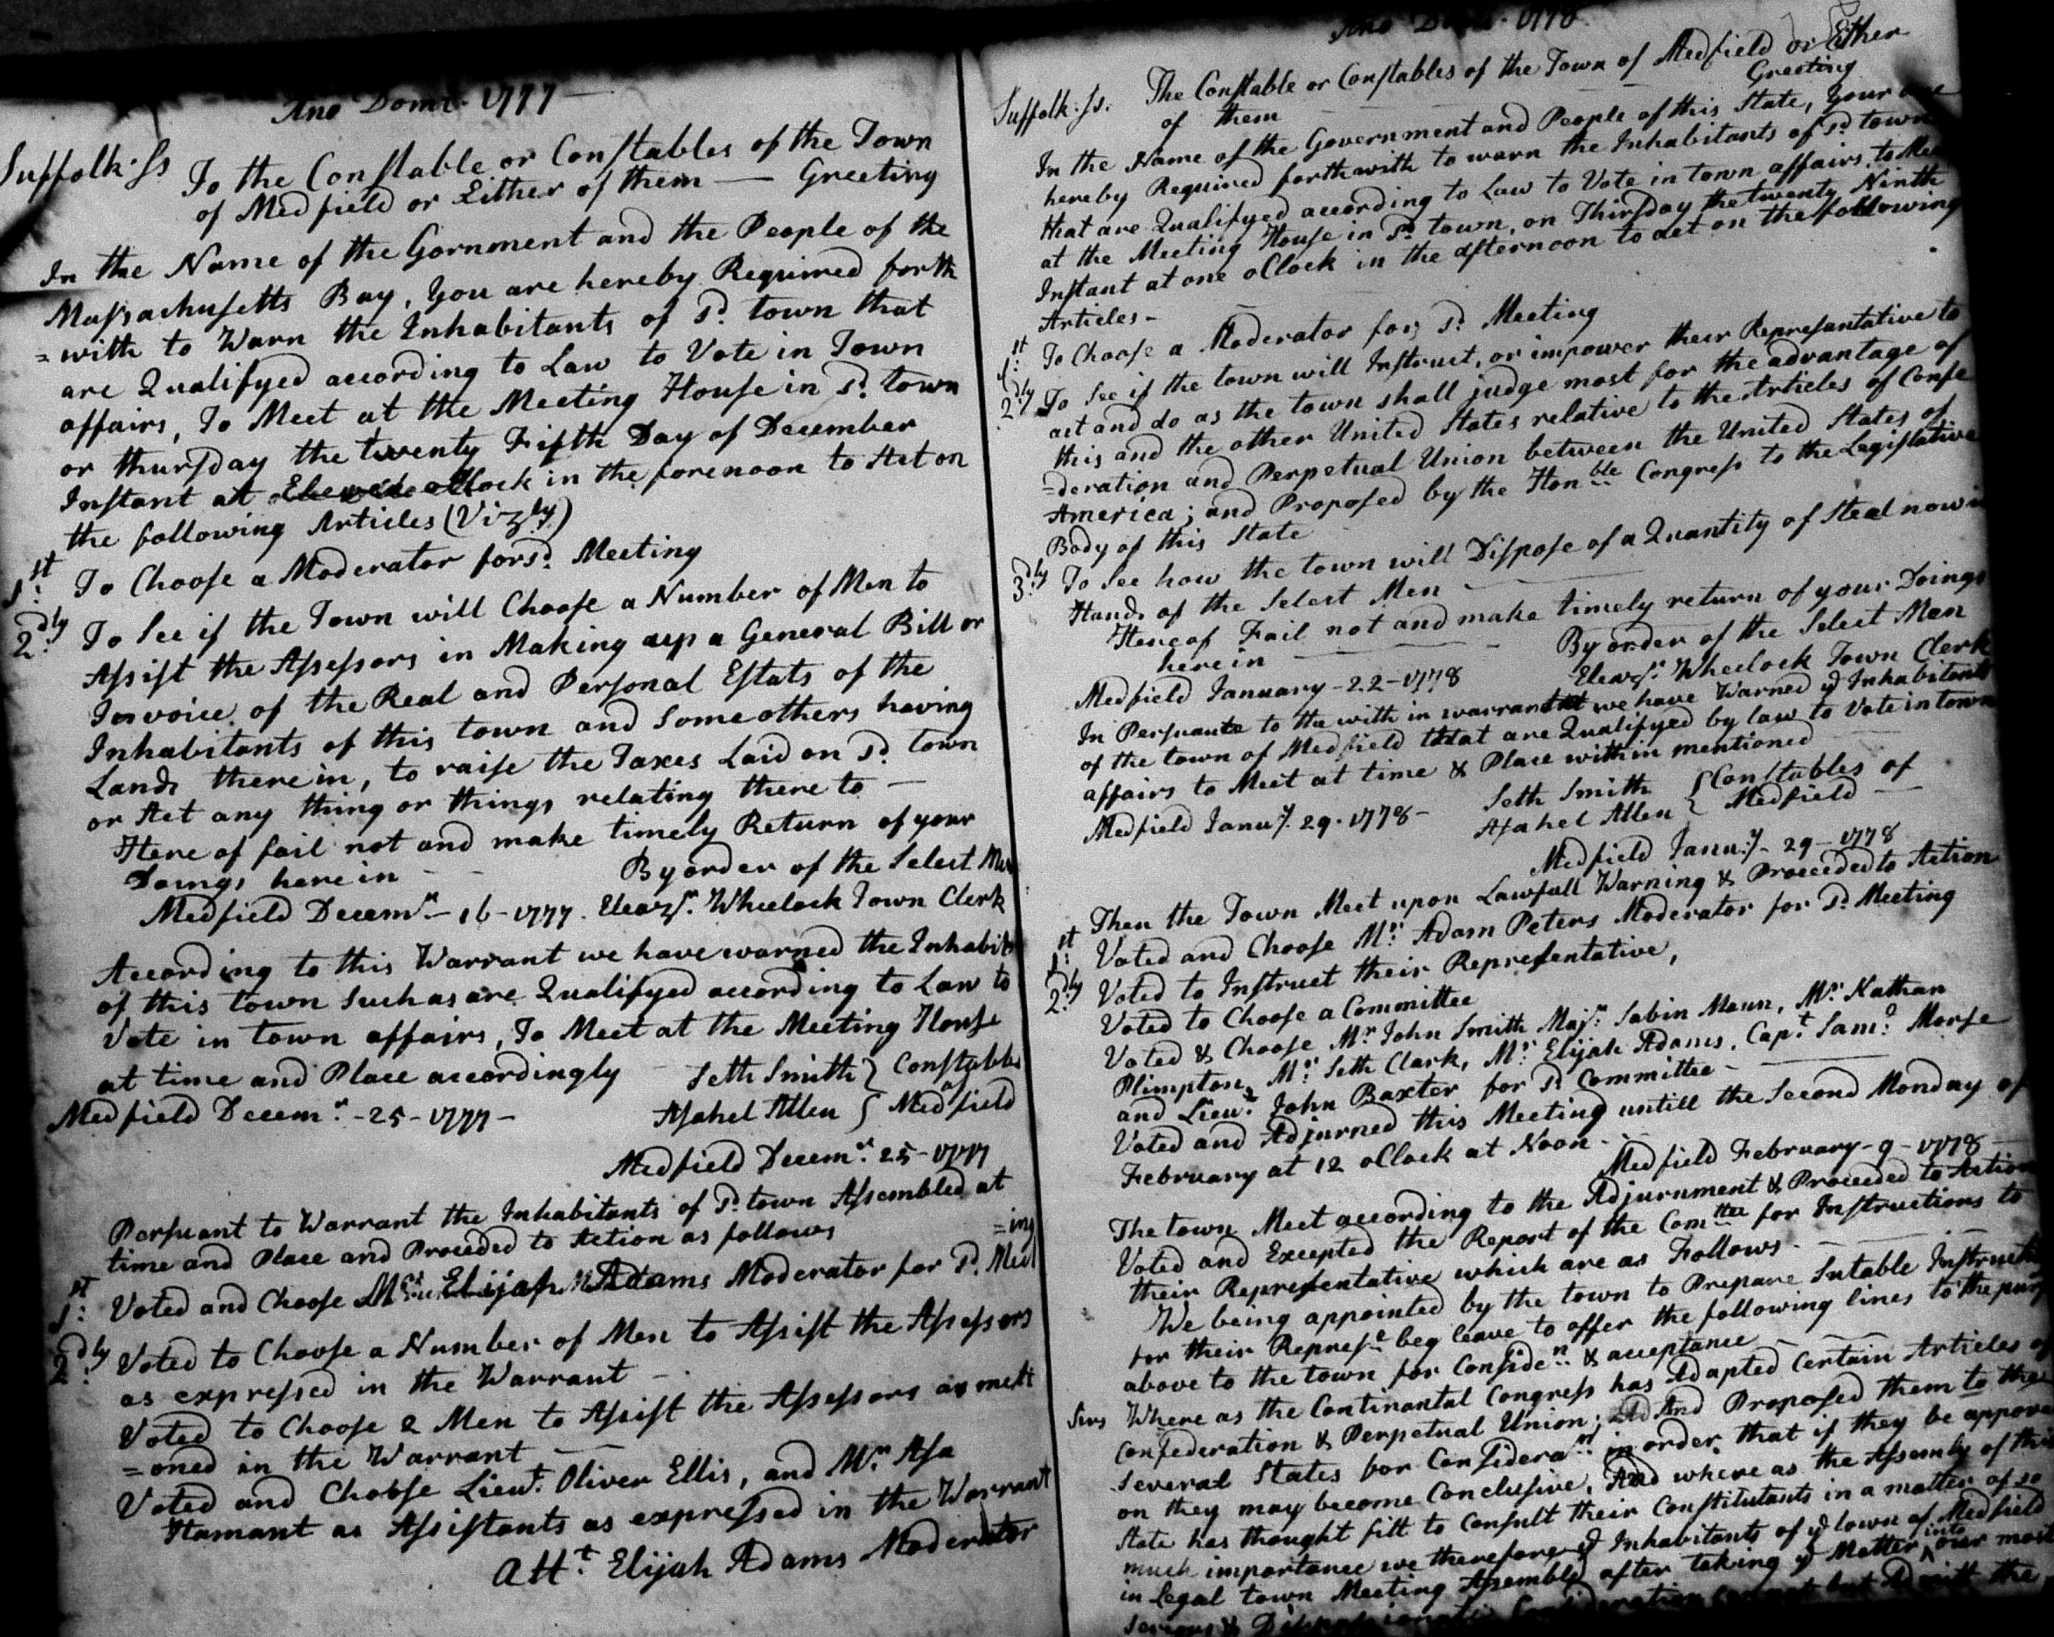 Ano Domi. 1777
Suffolk Ss To the Constable or Constables of the Town
of Medfield or Either of them — Greeting
In the Name of the Gornment and the People of the
Massachusetts Bay, You are hereby Required forth
=with to Warn the Inhabitants of sd. town that
are Qualifyed according to Law to Vote in Town
affairs, To Meet at the Meeting House in sd. town
or thursday the twenty Fifth Day of December
Instant at oClock in the forenoon to Act on
the following Articles (Vizly)
1st: To Choose a Moderator for sd. Meeting
2dly To See if the Town will Choose a Number of Men to
Assist the Assessors in Making up a General Bill or
Invoice of the Real and Personal Estats of the
Inhabitants of this town and Some others having
Lands there in, to raise the Taxes Laid on sd. town
or Act any thing or things relating there to —
Here of fail not and make timely Return of your
Doings here in - - By order of the Select Men
Medfield Decemr. - 16 - 1777. Eleazr. Wheelock Town Clerk
According to this Warrant we have warned the Inhabits
of this town Such as are Qualifyed according to Law to
Vote in town affairs, To Meet at the Meeting House
at time and Place accordingly Seth Smith } Constabls
Medfield Decemr. - 25 - 1777 - Asahel Allen } of Medfield
Medfield Decemr. 25 - 1777
Persuant to Warrant the Inhabitants of sd. town Assembled at
time and Place and Proceded to Action as follows
1st: Voted and Choose Elijah Adams Moderator for sd. Meet =ing
2dly Voted to Choose a Number of Men to Assist the Assessors
as expressed in the Warrant -
Voted to Choose 2 Men to Assist the Assessors as menti
=oned in the Warrant —
Voted and Choose Lieut. Oliver Ellis, and Mr. Asa
Hamant as Assistants as expressed in the Warrant
Att.t Elijah Adams Moderator
Ano Domi. 1778
Suffolk Ss. The Constable or Constables of the Town of Medfield or Either
of them — Greeting
In the Name of the Government and People of this State, Your are
hereby Required forthwith to warn the Inhabitants of sd. town
that are Qualifyed according to Law to Vote in town affairs, to Meet
at the Meeting House in sd. town, on Thirsday the twenty Ninth
Instant at one oClock in the afternoon to act on the following
Articles -
1st: To Choose a Moderator for sd. Meeting
2dly To See if the town will Instruct, or impower their Representative to
act and do as the town shall judge most for the advantage of
this and the other United States relative to the Articles of Confe
=deration and Perpetual Union between the United States of
America; and Proposed by the Honble Congress to the Legislative
Body of this State
3dly To See how the town will Dispose of a Quantity of Steal now in
Hands of the Select Men
Here of Fail not and make timely return of your Doings
herein — By order of the Select Men
Medfield January - 22 - 1778 Eleazr. Wheelock Town Clerk
In Persuante to the with in warrant we have Warned ye Inhabitants
of the town of Medfield that are Qualifyed by law to Vote in town
affairs to Meet at time & Place within mentioned
Medfield Janury. 29. 1778 - Seth Smith } Constables of
Asahel Allen } Medfield —
Medfield Janury. - 29 - 1778
Then the Town Meet upon Lawfull Warning & Proceeded to Action
1st: Voted and Choose Mr. Adam Peters Moderator for sd. Meeting
2dly Voted to Instruct their Representative,
Voted to Choose a Committee
Voted & Choose Mr. John Smith Majr. Sabin Mann, Mr. Nathan
Plimpton, Mr. Seth Clark, Mr. Elijah Adams, Capt. Saml. Morse
and Lieut. John Baxter for sd. Committee -
Voted and Adjurned this Meeting untill the Second Monday of
February at 12 oClock at Noon -
Medfield February - 9 - 1778
The town Meet according to the Adjurnment & Proceeded to Action
Voted and Excepted the Report of the Comttee for Instructions to
their Representative which are as Follows
We being appointed by the town to Prepare Sutable Instructi
for their Represt. beg leave to offer the following lines to the purp
above to the town for Considen. & acceptance
Sirs Where as the Continantal Congress has Adapted Certain Articles of
Confederation & Perpetual Union; And Proposed them to the
Several States for Considera in order that if they be approv
on they may become Conclusive, And where as the Assembly of this
State has thought fitt to Consult their Constitutants in a matter of so
much importance we therefore ye Inhabitants of ye town of Medfield
in Legal town Meeting Assembled after taking ye Matter into our most
Serious & Consideration cannot but Admitt the